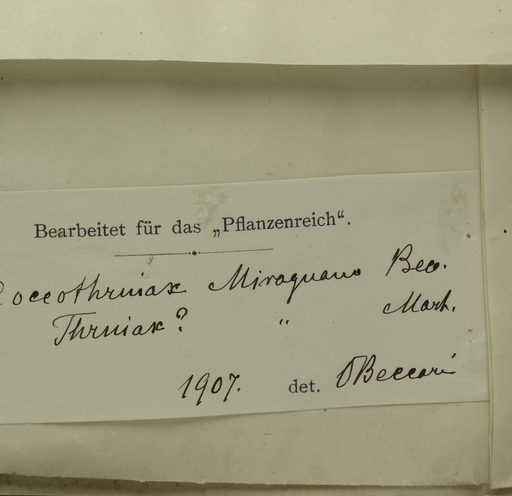 Bearbeitet für das „Pflanzenreich“.
Coccothrinax Miraguano Becc.
Thrinax? " Mart.
1907. det. OBeccari